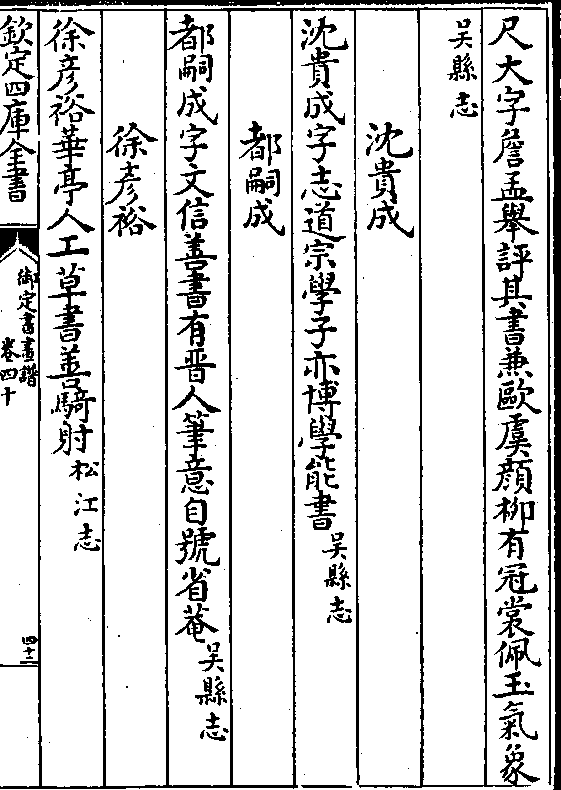 尺大字詹孟舉評其書兼歐虞顔柳有冠裳佩玉氣象
吳縣志
沈貴成
沈貴成字志道宗學子亦博學能書吳縣志
都嗣成
都嗣成字文信善書有晉人筆意自號省菴吳縣志
徐彦裕
徐彦裕華亭人工草書善騎射松江志
欽定四庫全書
御定書畫譜
卷四十
四十二